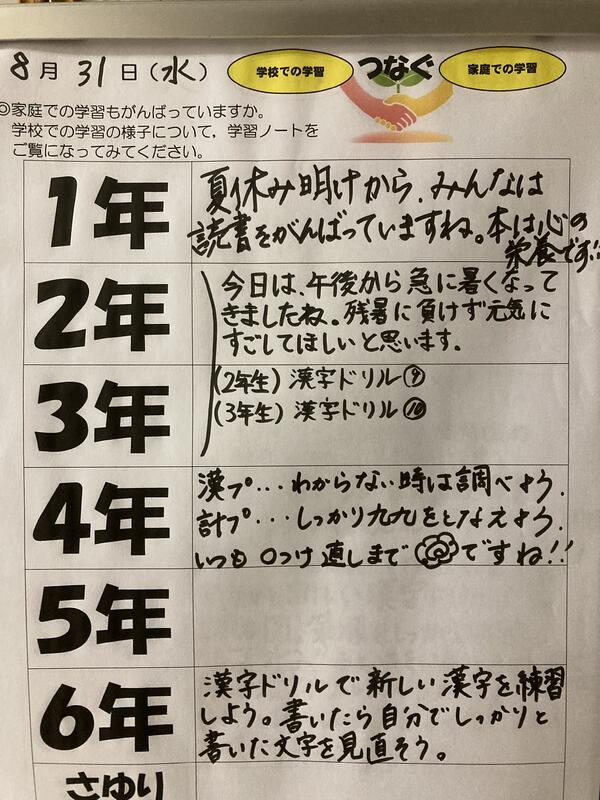 8月31日(水)
学校での学習
つなぐ
家庭での学習
◎家庭での学習もがんばっていますか。
学校での学習の様子について，学習ノートを
ご覧になってみてください。
1年
夏休み明けから、みんなは
読書をがんばっていますね。本は心の
栄養です!!
2年
今日は、午後から急に暑くなって
きましたね。残暑に負けず元気に
すごしてほしいと思います。
3年
(2年生) 漢字ドリル⑨
(3年生) 漢字ドリル⑩
4年
漢プ…わからない時は調べよう.
計プ…しっかり九九をとなえよう.
いつも ○つけ直しまで ですね!!
5年
6年
漢字ドリルで新しい漢字を練習
しよう。書いたら自分でしっかりと
書いた文字を見直そう。
さゆり